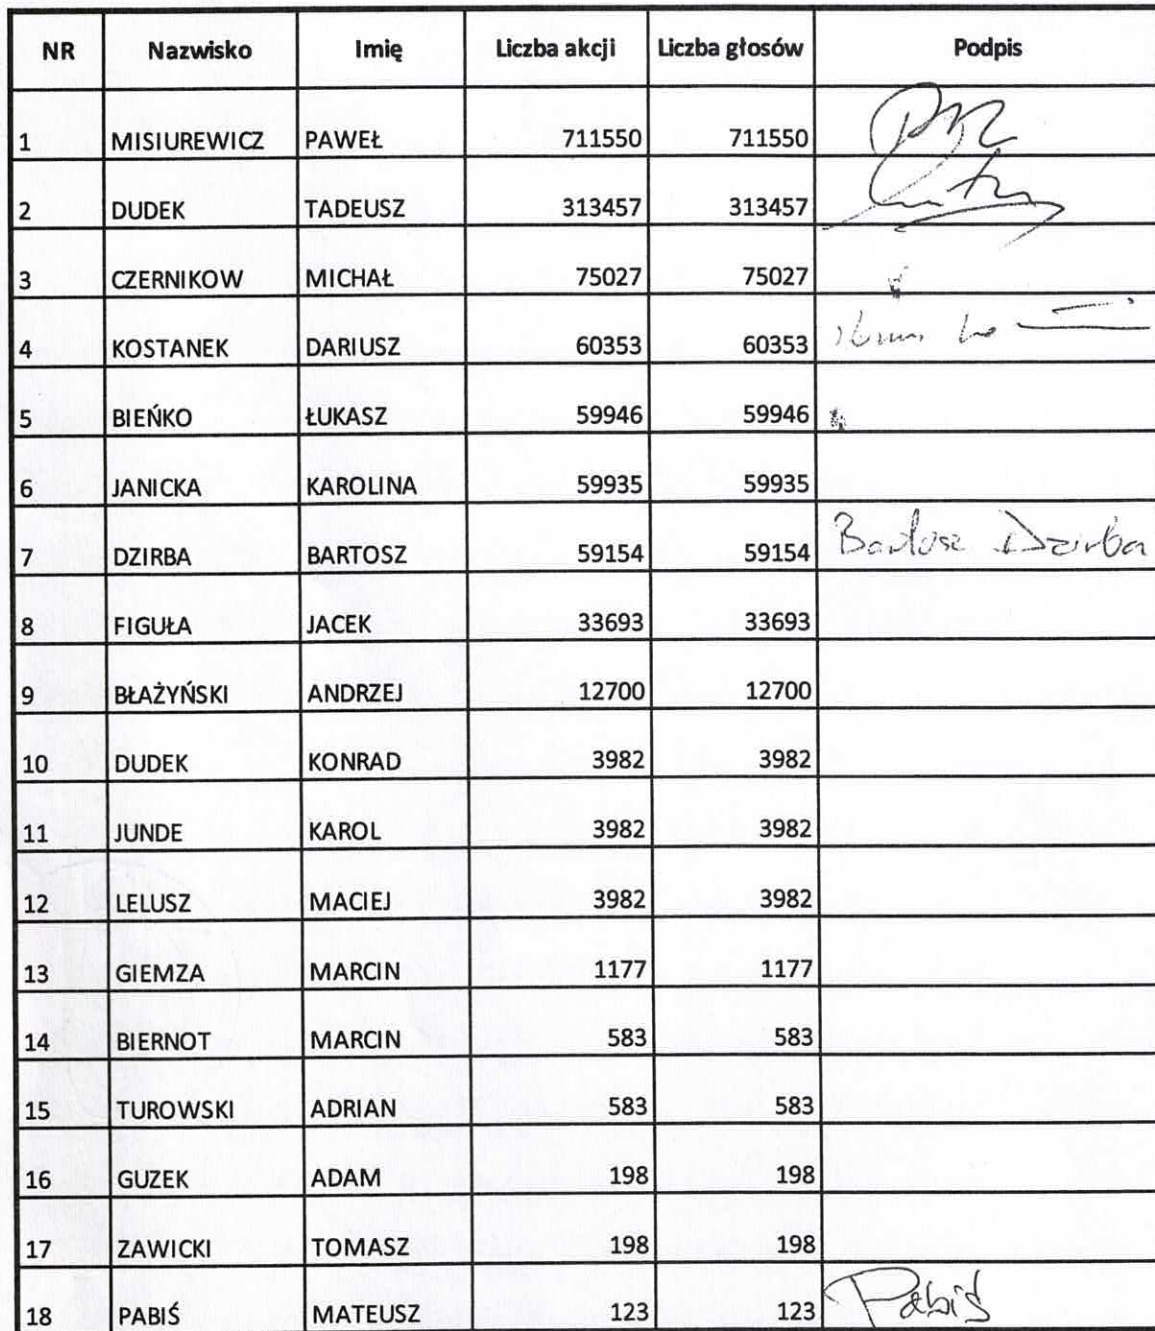 NR Nazwisko Imię Liczba akcji Liczba głosów Podpis
1 MISIUREWICZ PAWEŁ 711550 711550
2 DUDEK TADEUSZ 313457 313457
3 CZERNIKOW MICHAŁ 75027 75027
4 KOSTANEK DARIUSZ 60353 60353
5 BIEŃKO ŁUKASZ 59946 59946
6 JANICKA KAROLINA 59935 59935
7 DZIRBA BARTOSZ 59154 59154 Bartosz Dzirba
8 FIGUŁA JACEK 33693 33693
9 BŁAŻYŃSKI ANDRZEJ 12700 12700
10 DUDEK KONRAD 3982 3982
11 JUNDE KAROL 3982 3982
12 LELUSZ MACIEJ 3982 3982
13 GIEMZA MARCIN 1177 1177
14 BIERNOT MARCIN 583 583
15 TUROWSKI ADRIAN 583 583
16 GUZEK ADAM 198 198
17 ZAWICKI TOMASZ 198 198
18 PABIŚ MATEUSZ 123 123 Pabiś